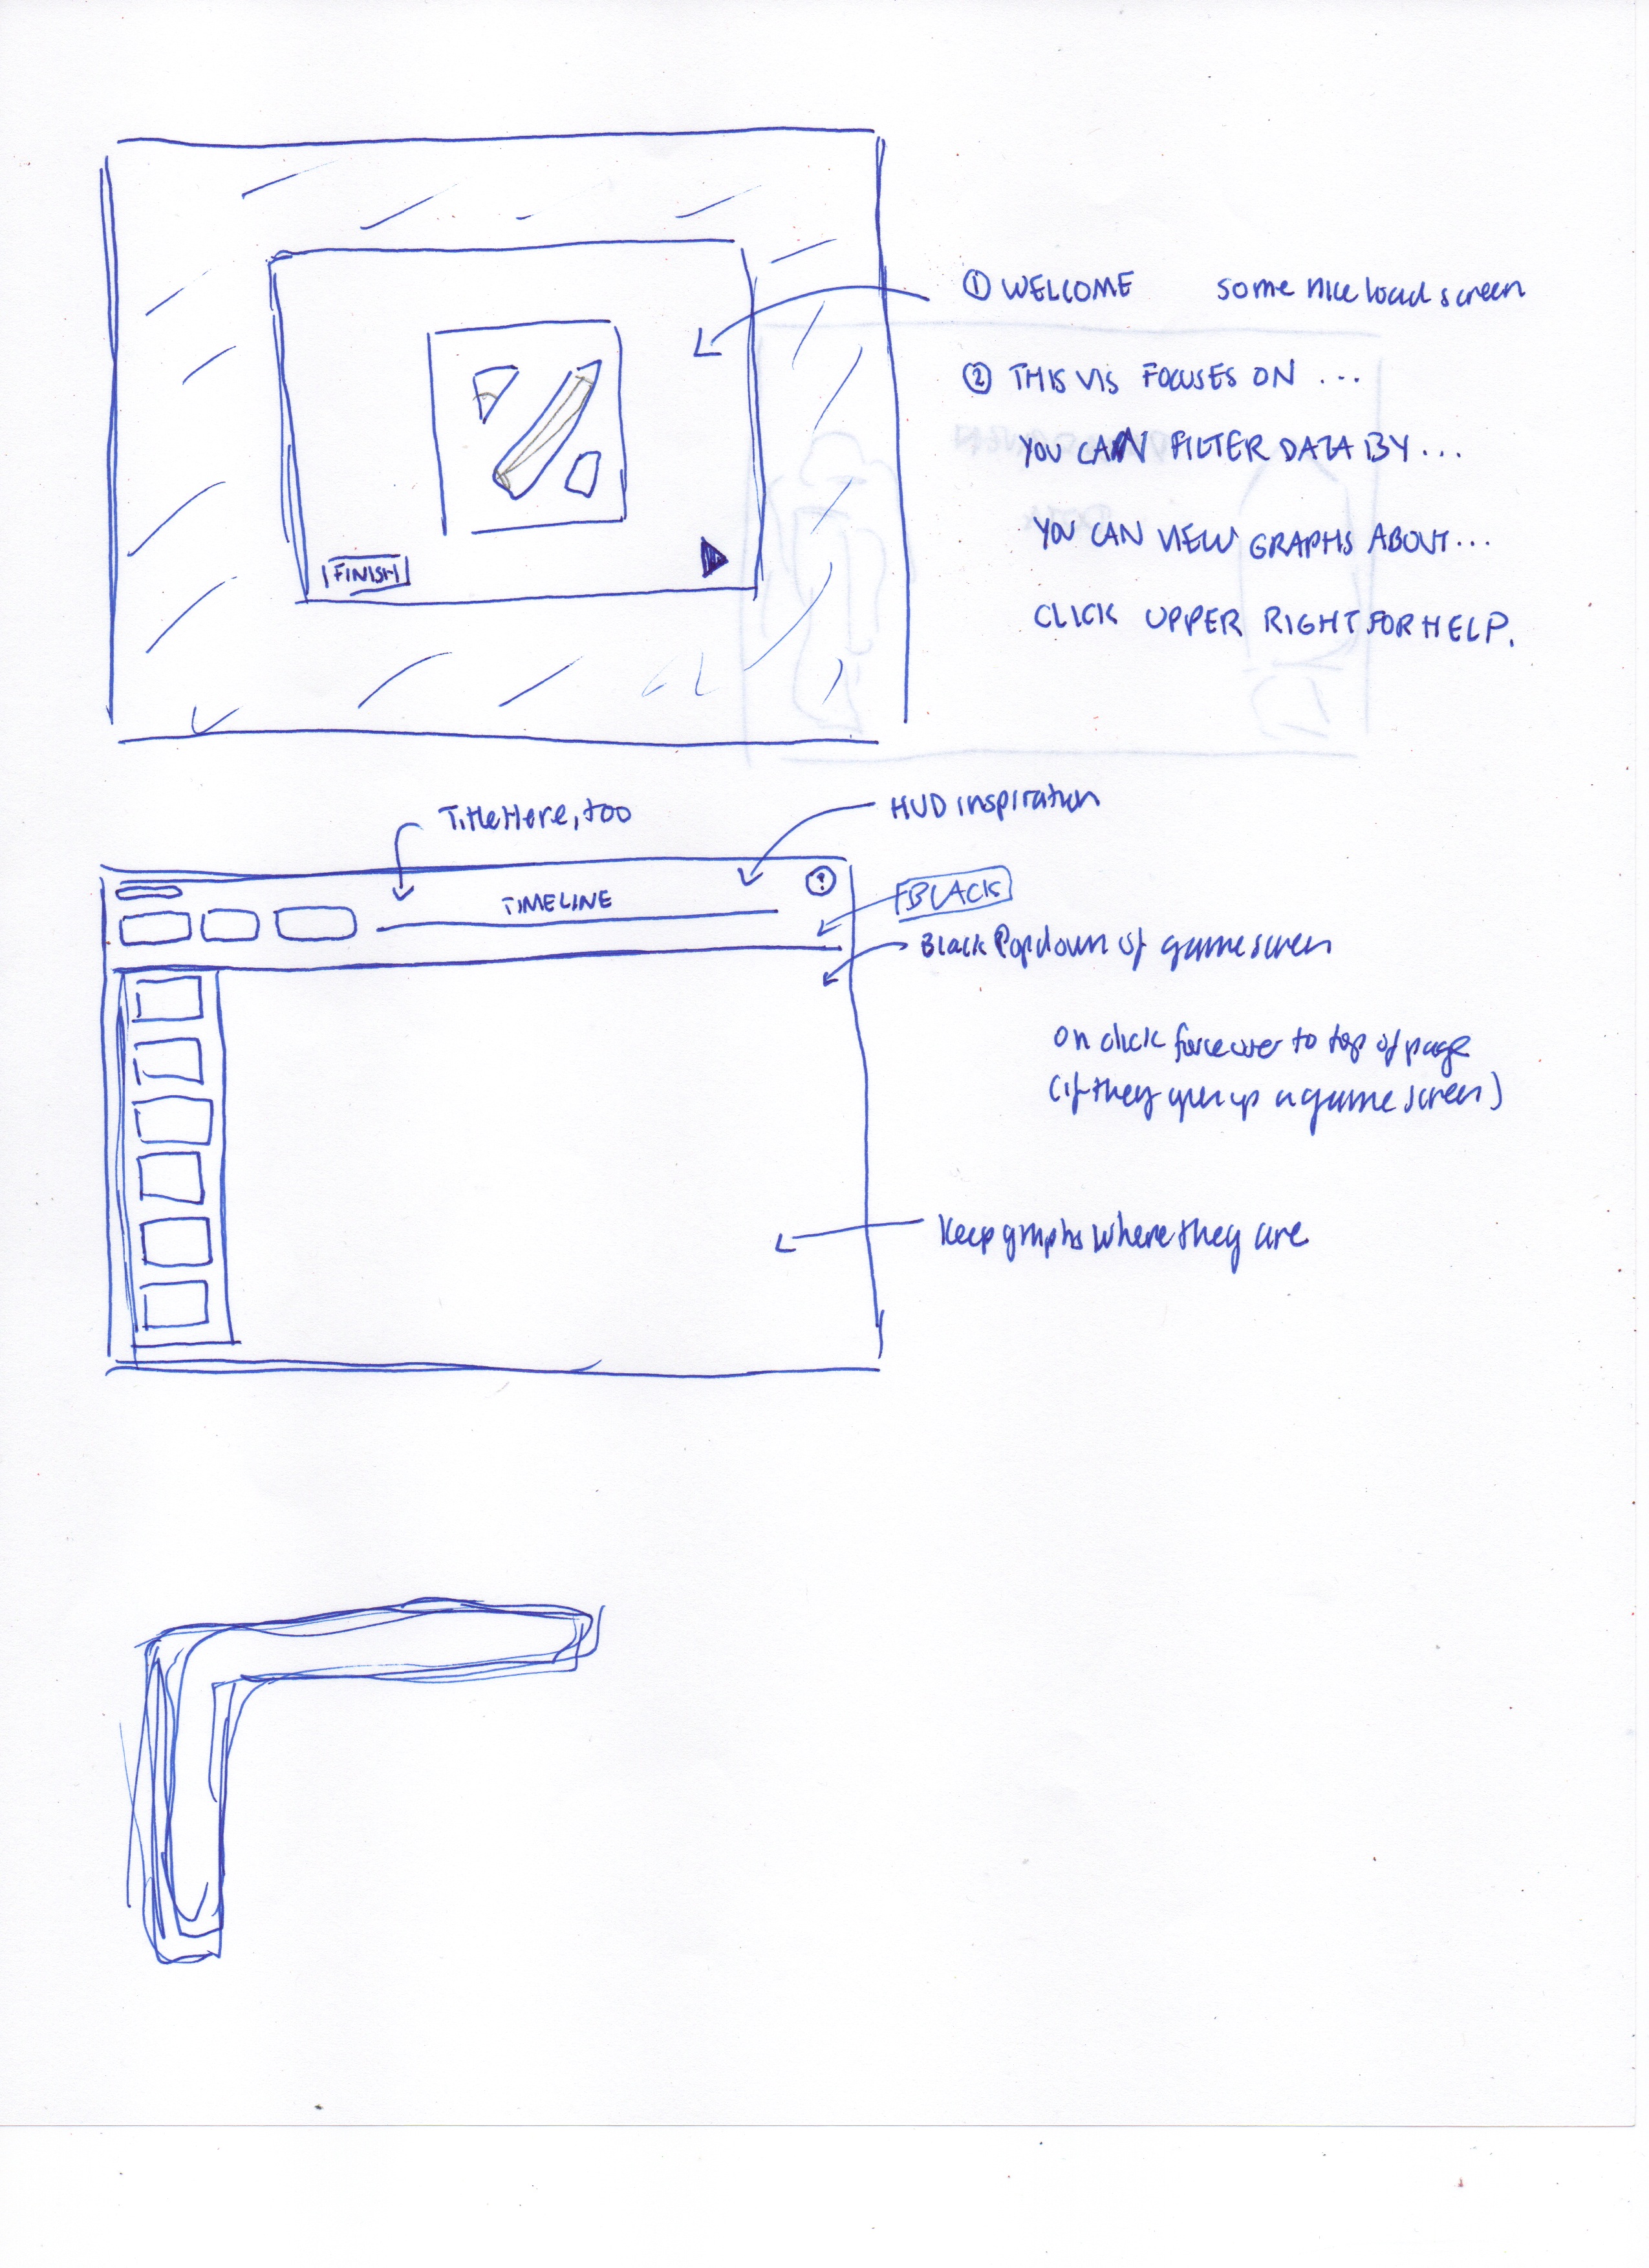 ① WELCOME some nice load screen
② THIS VIS FOCUSES ON ...
YOU CAN FILTER DATA BY...
YOU CAN VIEW GRAPHS ABOUT...
CLICK UPPER RIGHT FOR HELP.
FINISH
Title Here, too
HUD inspiration
TIMELINE
?
BLACK
Black Popdown of game screen
on click force user to top of page
(if they open up a game screen)
Keep graphs where they are